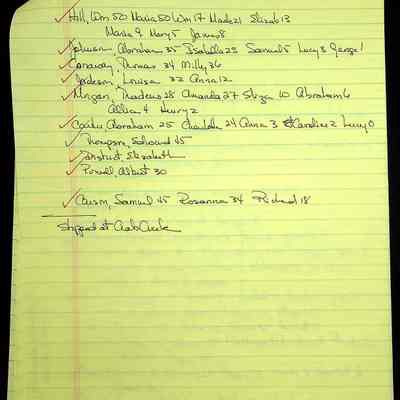 Hill, Wm 50 Maria 50 Wm 17 Made 21 Elizab 13
Maria 9 Mary 5 James 8
Johnson, Abraham 35 Isabella 23 Samuel 5 Lucy 3 George 1
Conaway, Thomas 34 Milly 36
Jackson, Louisa 32 Anna 12
Morgan, Thadeus 28 Amanda 27 Eliza 10 Abraham 6
Allen 4 Henry 2
Abraham 25 Charlotte 24 Anna 3 Caroline 2 Lucy 0
Thompson, Edward 45
Elizabeth
Powell, Albert 30
Samuel 45 Rosanna 34 Richard 18
Stopped at Crab Creek